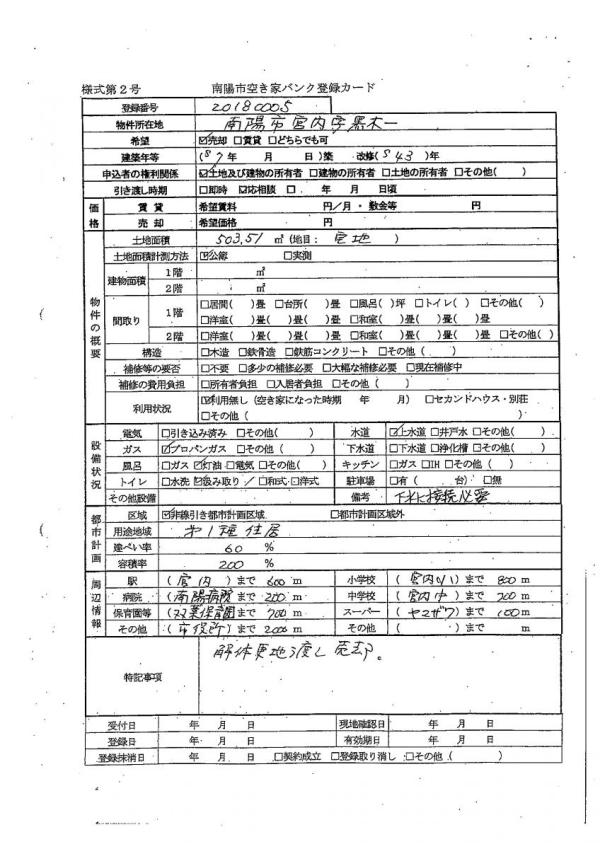 様式第2号 南陽市空き家バンク登録カード
登録番号 20180005
物件所在地 南陽市宮内字黒木一
希望 ☑売却 □賃貸 □どちらでも可
建築年等 (S7年 月 日)築 改修(S43)年
申込者の権利関係 ☑土地及び建物の所有者 □建物の所有者 □土地の所有者 □その他( )
引き渡し時期 □即時 ☑応相談 □ 年 月 日頃
価格 賃貸 希望賃料 円/月・敷金等 円
売却 希望価格 円
物件の概要 土地面積 503.51 ㎡(地目: 宅地 )
土地面積計測方法 ☑公簿 □実測
建物面積 1階 ㎡
2階 ㎡
間取り 1階 □居間( )畳 □台所( )畳 □風呂( )坪 □トイレ( ) □その他( )
□洋室( )畳( )畳( )畳 □和室( )畳( )畳( )畳
2階 □洋室( )畳( )畳( )畳 □和室( )畳( )畳( )畳 □その他( )
構造 □木造 □鉄骨造 □鉄筋コンクリート □その他( )
補修等の要否 □不要 □多少の補修必要 □大幅な補修必要 □現在補修中
補修の費用負担 □所有者負担 □入居者負担 □その他( )
利用状況 ☑利用無し(空き家になった時期 年 月) □セカンドハウス・別荘
□その他( )
設備状況 電気 □引き込み済み □その他( ) 水道 ☑上水道 □井戸水 □その他( )
ガス ☑プロパンガス □その他( ) 下水道 □下水道 □浄化槽 □その他( )
風呂 □ガス ☑灯油 □電気 □その他( ) キッチン □ガス □IH □その他( )
トイレ □水洗 ☑汲み取り / □和式・□洋式 駐車場 □有( 台) □無
その他設備 備考 下水に接続必要
都市計画 区域 ☑非線引き都市計画区域 □都市計画区域外
用途地域 第1種住居
建ぺい率 60 %
容積率 200 %
周辺情報 駅 (宮内)まで 600m 小学校 (宮内小)まで 800m
病院 (南陽病院)まで 200m 中学校 (宮内中)まで 700m
保育園等 (双葉保育園)まで 700m スーパー (ヤマザワ)まで 100m
その他 (市役所)まで 2000m その他 ( )まで m
特記事項 解体更地渡し売却。
受付日 年 月 日 現地確認日 年 月 日
登録日 年 月 日 有効期日 年 月 日
登録抹消日 年 月 日 □契約成立 □登録取り消し □その他( )